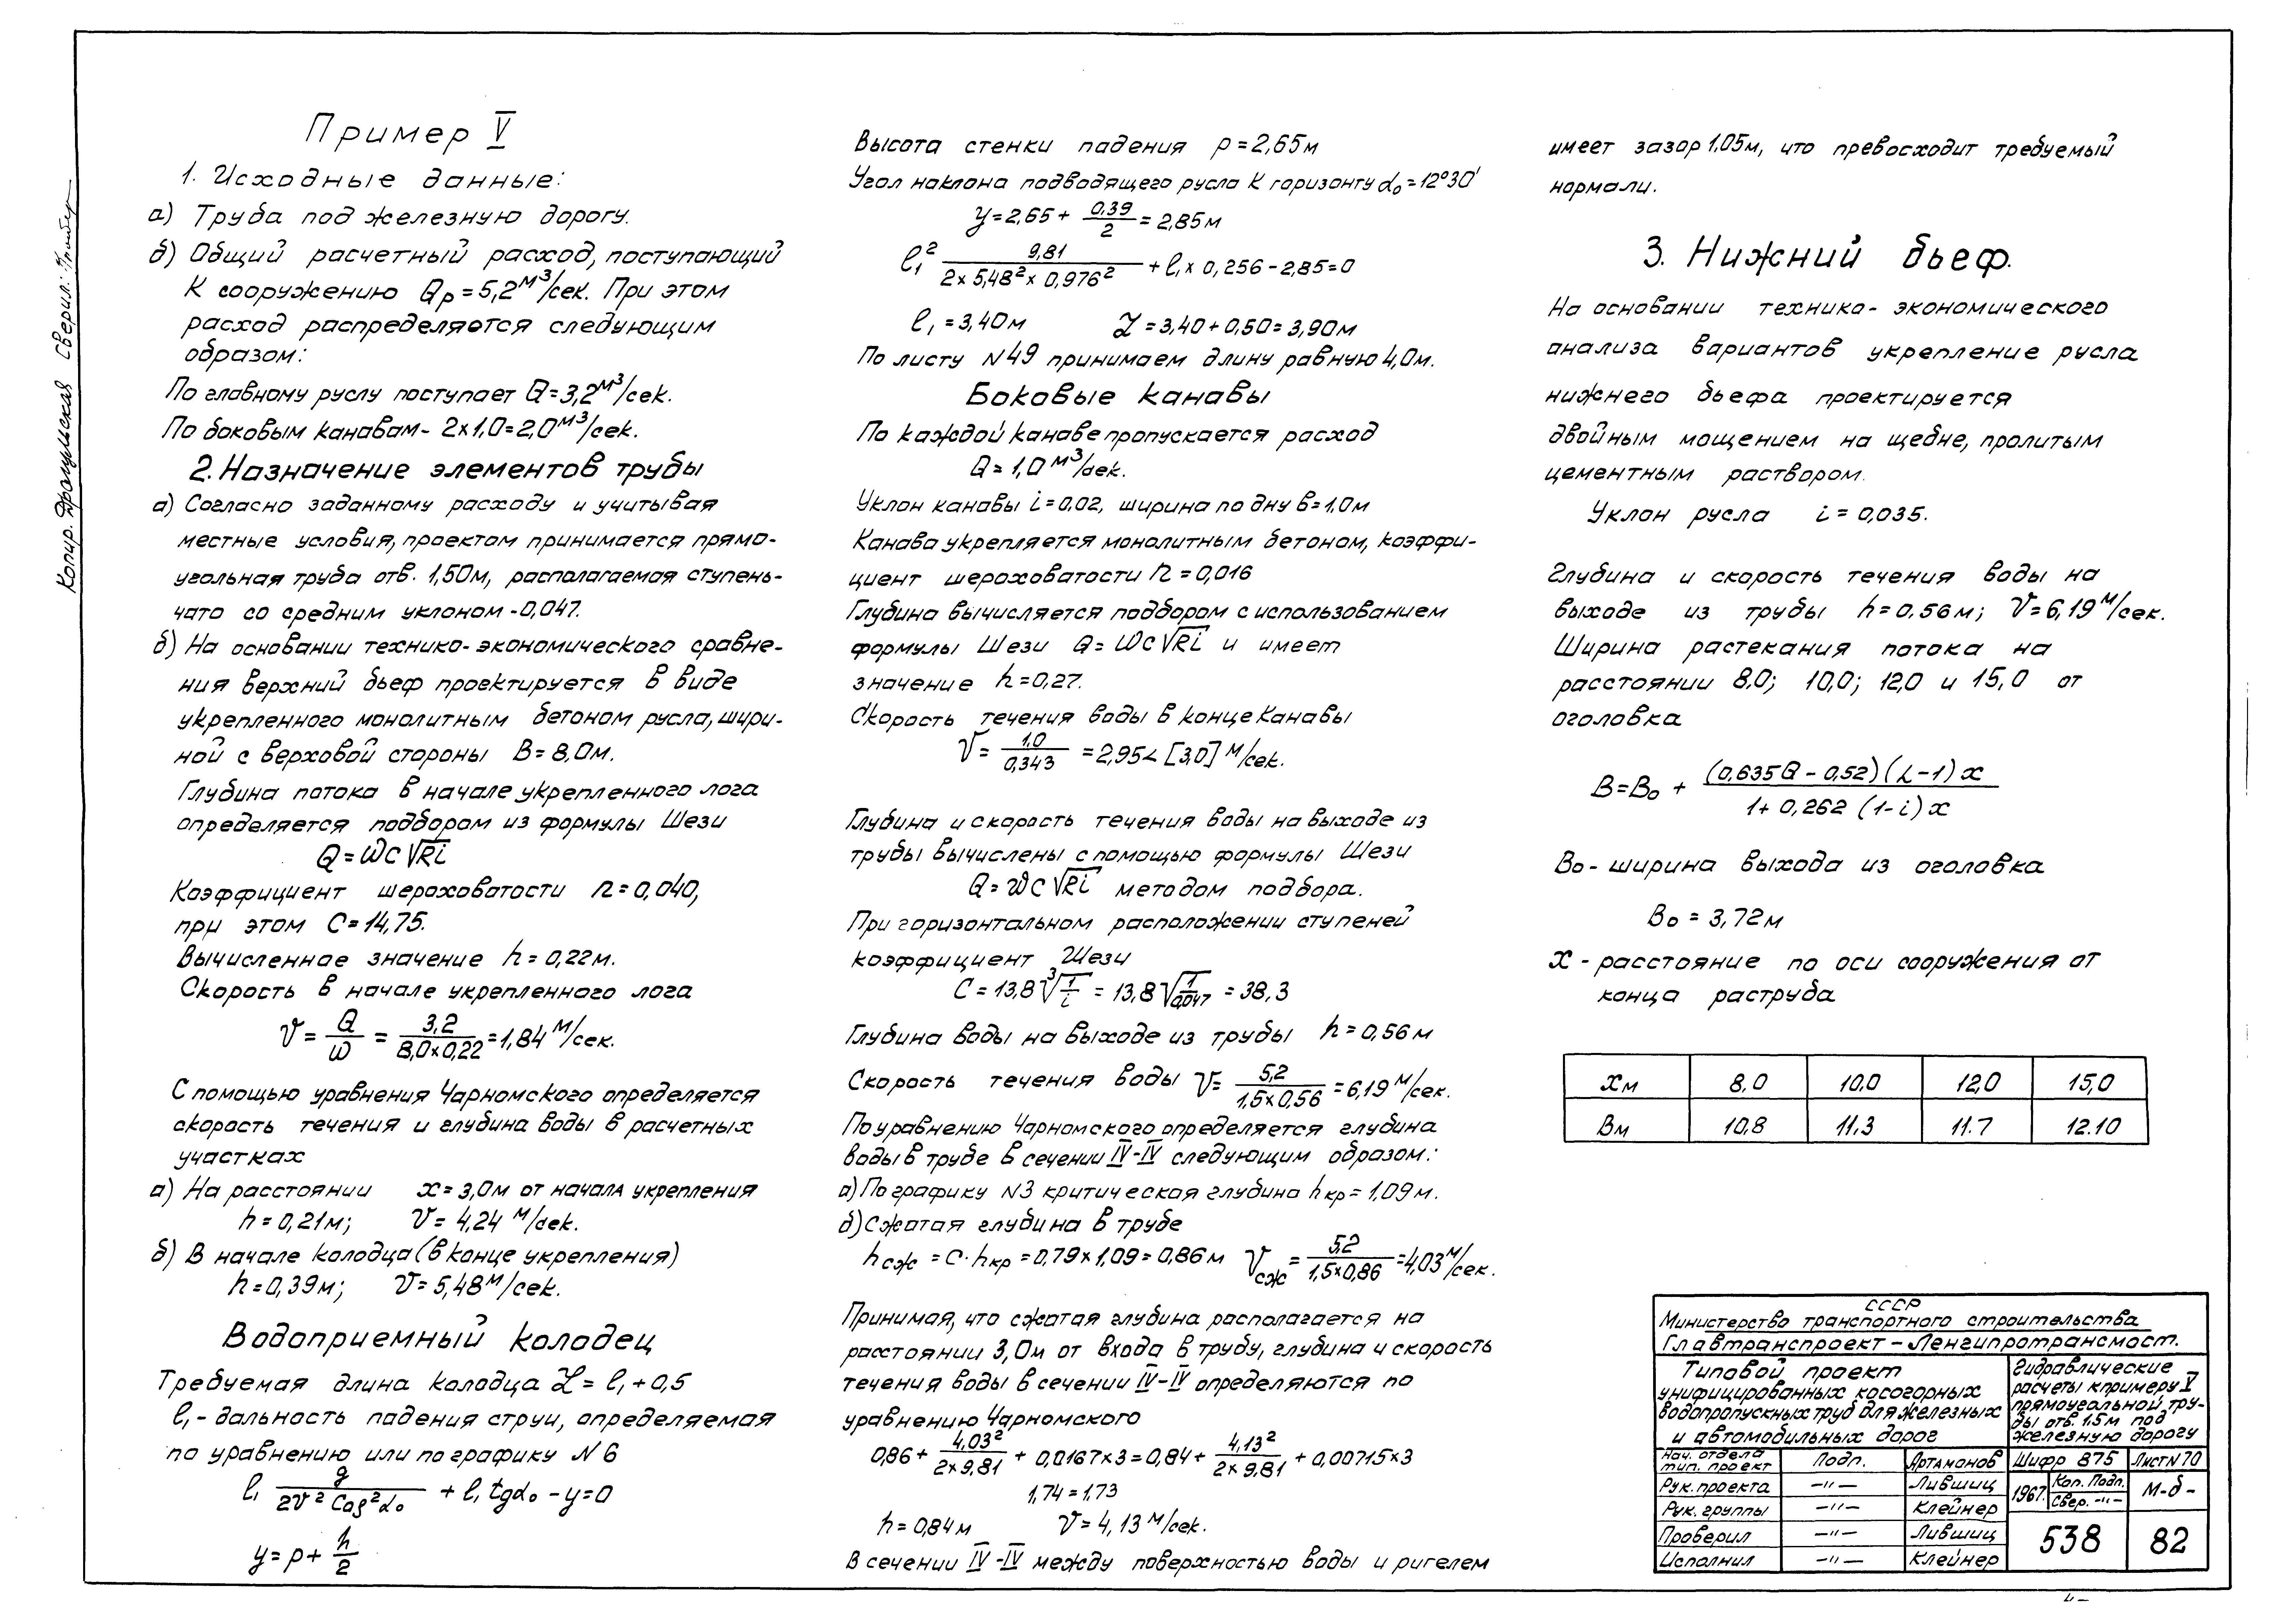 Пример V
1. Исходные данные:
а) Труба под железную дорогу.
б) Общий расчетный расход, поступающий
к сооружению Qр = 5,2 м³/сек. При этом
расход распределяется следующим
образом:
По главному руслу поступает Q = 3,2 м³/сек.
По боковым канавам - 2×1,0 = 2,0 м³/сек.
2. Назначение элементов трубы
а) Согласно заданному расходу и учитывая
местные условия, проектом принимается прямо-
угольная труба отв. 1,50м, располагаемая ступень-
чато со средним уклоном - 0,047.
б) На основании технико-экономического сравне-
ния верхний бьеф проектируется в виде
укрепленного монолитным бетоном русла, шири-
ной с верховой стороны В = 8,0м.
Глубина потока в начале укрепленного лога
определяется подбором из формулы Шези
Q = ωC√Ri
Коэффициент шероховатости n = 0,040,
при этом С = 14,75.
Вычисленное значение h = 0,22м.
Скорость в начале укрепленного лога
V = Q/ω = 3,2/(8,0×0,22) = 1,84 м/сек.
С помощью уравнения Чарномского определяется
скорость течения и глубина воды в расчетных
участках
а) На расстоянии x = 3,0м от начала укрепления
h = 0,21м; V = 4,24 м/сек.
б) В начале колодца (в конце укрепления)
h = 0,39м; V = 5,48 м/сек.
Водоприемный колодец
Требуемая длина колодца L = l₁ + 0,5
l₁ - дальность падения струи, определяемая
по уравнению или по графику N 6
l₁ g/(2V² Cos²α₀) + l₁ tgα₀ - y = 0
y = p + h/2
Высота стенки падения p = 2,65м
Угол наклона подводящего русла к горизонту α₀ = 12°30'
y = 2,65 + 0,39/2 = 2,85м
l₁² 9,81/(2×5,48²×0,976²) + l₁ × 0,256 - 2,85 = 0
l₁ = 3,40м L = 3,40 + 0,50 = 3,90м
По листу N 49 принимаем длину равную 4,0м.
Боковые канавы
По каждой канаве пропускается расход
Q = 1,0 м³/сек.
Уклон канавы i = 0,02, ширина по дну в = 1,0м
Канава укрепляется монолитным бетоном, коэффи-
циент шероховатости n = 0,016
Глубина вычисляется подбором с использованием
формулы Шези Q = ωC√Ri и имеет
значение h = 0,27.
Скорость течения воды в конце канавы
V = 1,0/0,343 = 2,95 < [3,0] м/сек.
Глубина и скорость течения воды на выходе из
трубы вычислены с помощью формулы Шези
Q = ωC√Ri методом подбора.
При горизонтальном расположении ступеней
коэффициент Шези
C = 13,8 ³√(1/i) = 13,8 √(1/0,047) = 38,3
Глубина воды на выходе из трубы h = 0,56м
Скорость течения воды V = 5,2/(1,5×0,56) = 6,19 м/сек.
По уравнению Чарномского определяется глубина
воды в трубе в сечении IV-IV следующим образом:
а) По графику N3 критическая глубина hкр = 1,09м.
б) Сжатая глубина в трубе
hсж = С·hкр = 0,79×1,09 = 0,86м Vсж = 5,2/(1,5×0,86) = 4,03 м/сек.
Принимая, что сжатая глубина располагается на
расстоянии 3,0м от входа в трубу, глубина и скорость
течения воды в сечении IV-IV определяются по
уравнению Чарномского
0,86 + 4,03²/(2×9,81) + 0,0167×3 = 0,84 + 4,13²/(2×9,81) + 0,00715×3
1,74 = 1,73
h = 0,84м V = 4,13 м/сек.
В сечении IV-IV между поверхностью воды и ригелем
имеет зазор 1,05м, что превосходит требуемый
нормали.
3. Нижний бьеф.
На основании технико-экономического
анализа вариантов укрепление русла
нижнего бьефа проектируется
двойным мощением на щебне, пролитым
цементным раствором.
Уклон русла i = 0,035.
Глубина и скорость течения воды на
выходе из трубы h = 0,56м; V = 6,19 м/сек.
Ширина растекания потока на
расстоянии 8,0; 10,0; 12,0 и 15,0 от
оголовка
B = B₀ + (0,635Q - 0,52)(L-1)x / 1 + 0,262 (1-i)x
В₀ - ширина выхода из оголовка
В₀ = 3,72м
x - расстояние по оси сооружения от
конца раструба
xм 8,0 10,0 12,0 15,0
Вм 10,8 11.3 11.7 12.10
СССР
Министерство транспортного строительства
Главтранспроект - Ленгипротрансмост.
Типовой проект
унифицированных косогорных
водопропускных труб для железных
и автомобильных дорог
Гидравлические
расчеты к примеру V
прямоугольной тру-
бы отв. 1.5м под
железную дорогу
Нач. отдела тип. проект Подп. Артамонов Шифр 875 Лист N 70
Рук. проекта -"- Лившиц 1967г. Коп. Подп. М-б -
Рук. группы -"- Клейнер Свер. -"-
Проверил -"- Лившиц 538 82
Исполнил -"- Клейнер
Копир. Сверил: